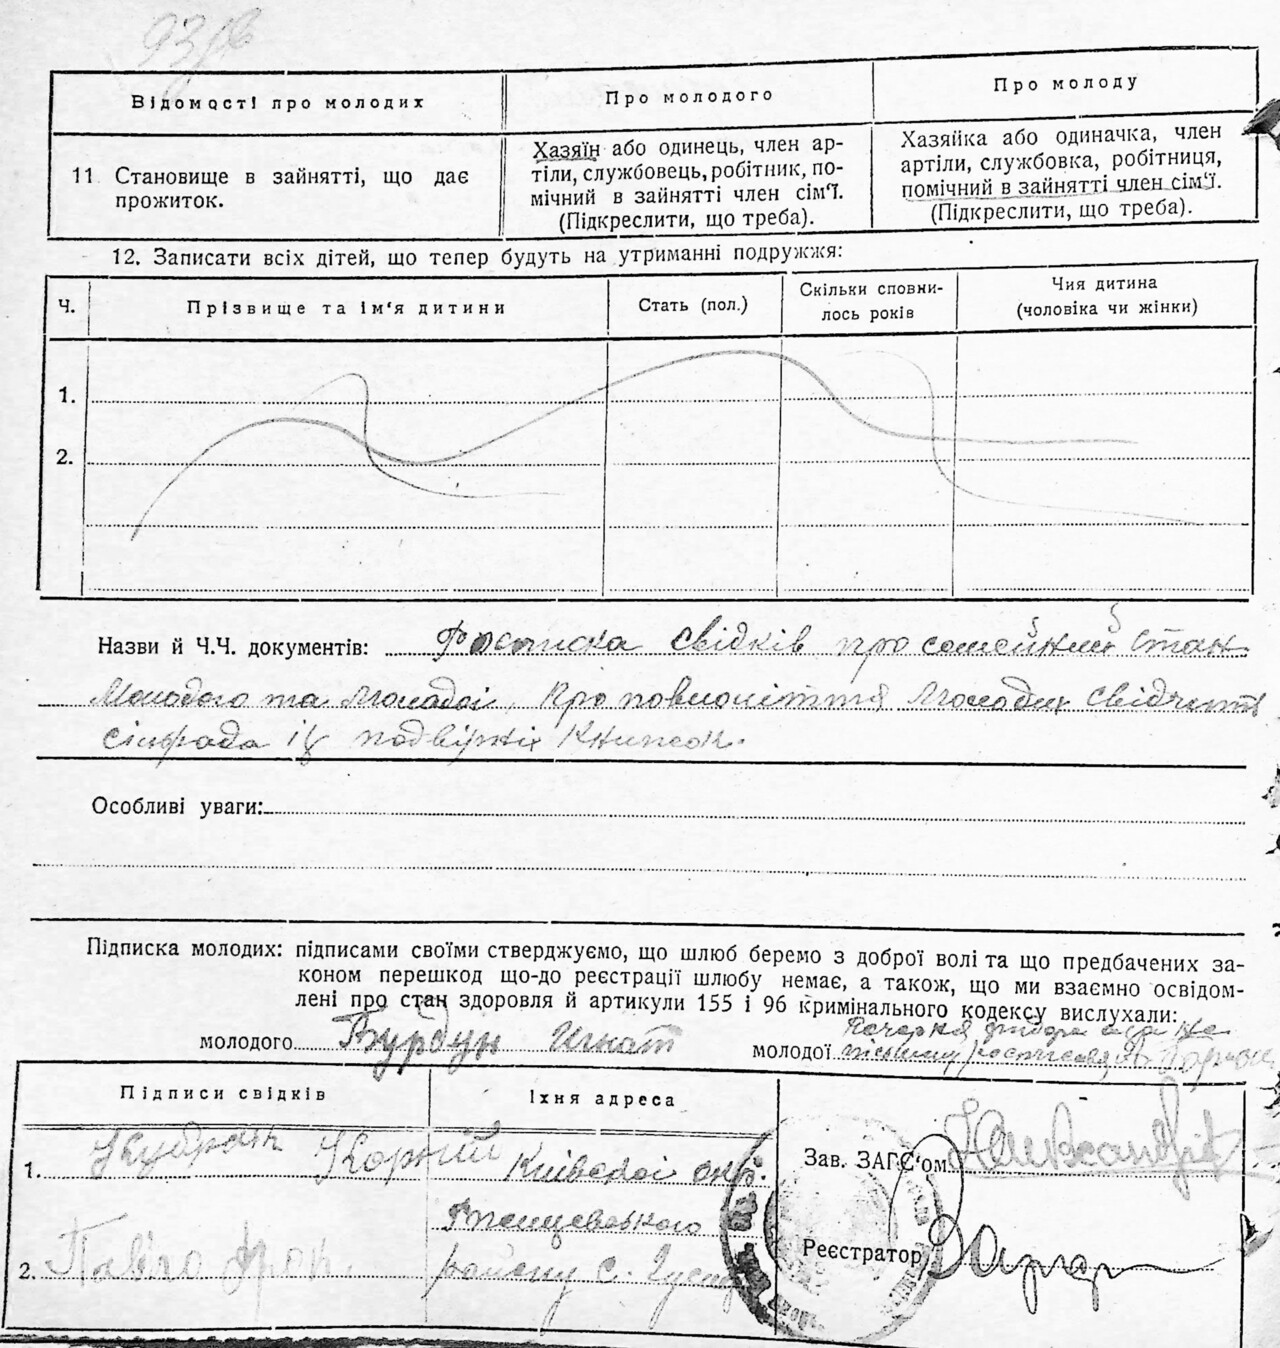 Відомості про молодих
Про молодого
Про молоду
11 Становище в зайнятті, що дає
прожиток.
Хазяїн або одинець, член ар-
тіли, службовець, робітник, по-
мічний в зайнятті член сім'ї.
(Підкреслити, що треба).
Хазяйка або одиначка, член
артіли, службовка, робітниця,
помічний в зайнятті член сім'ї.
(Підкреслити, що треба).
12. Записати всіх дітей, що тепер будуть на утриманні подружжя:
Ч.
Прізвище та ім'я дитини
Стать (пол.)
Скільки сповни-
лось років
Чия дитина
(чоловіка чи жінки)
1.
2.
Назви й Ч.Ч. документів: Росписка свідків про семейний стан
Молодого та молодої, про повноліття молодих свідчить
сільрада із подвірніх книжок.
Особливі уваги:
Підписка молодих: підписами своїми стверджуємо, що шлюб беремо з доброї волі та що предбачених за-
коном перешкод що-до реєстрації шлюбу немає, а також, що ми взаємно освідом-
лені про стан здоровля й артикули 155 і 96 кримінального кодексу вислухали:
молодого Бурдун Игнат
молодої
Підписи свідків
Їхня адреса
1. Кудрак Корній
Київської окр.
2. Павло
району с.
Зав. ЗАГС'ом
Реєстратор